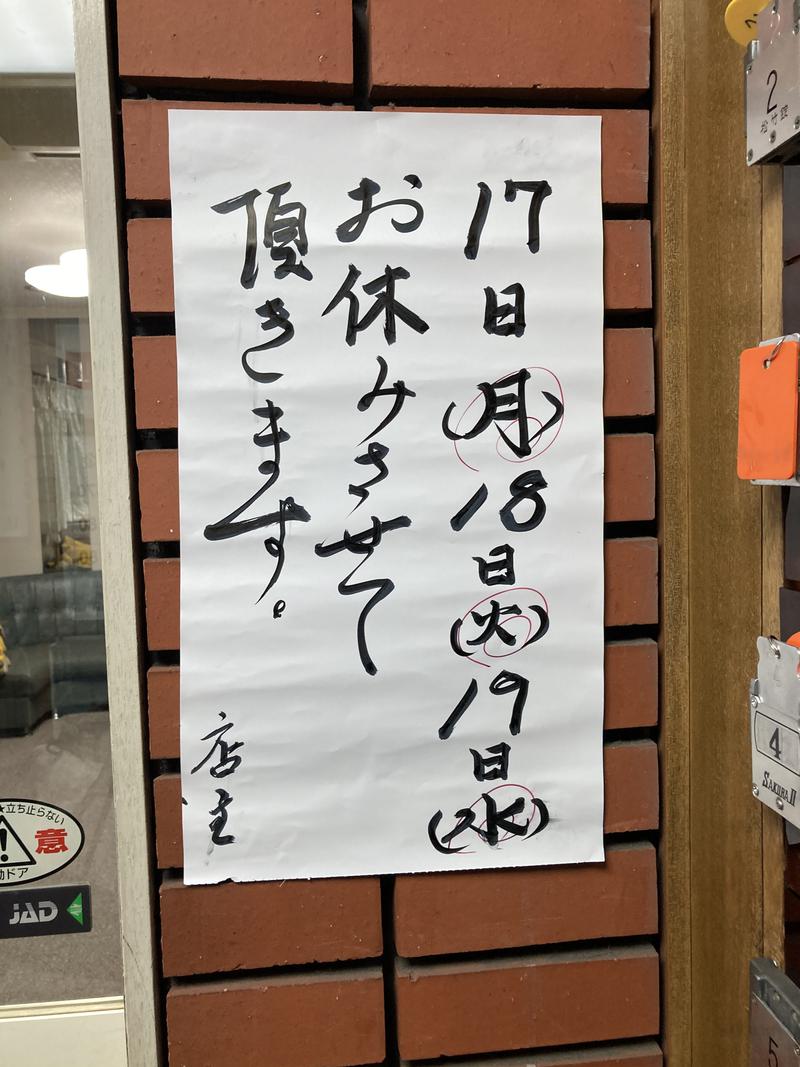 17日(月)18日(火)19日(水)
お休みさせて
頂きます。
店主
2
松竹錠
4
SAKURA II
5
立ち止らない
意
動ドア
JAD